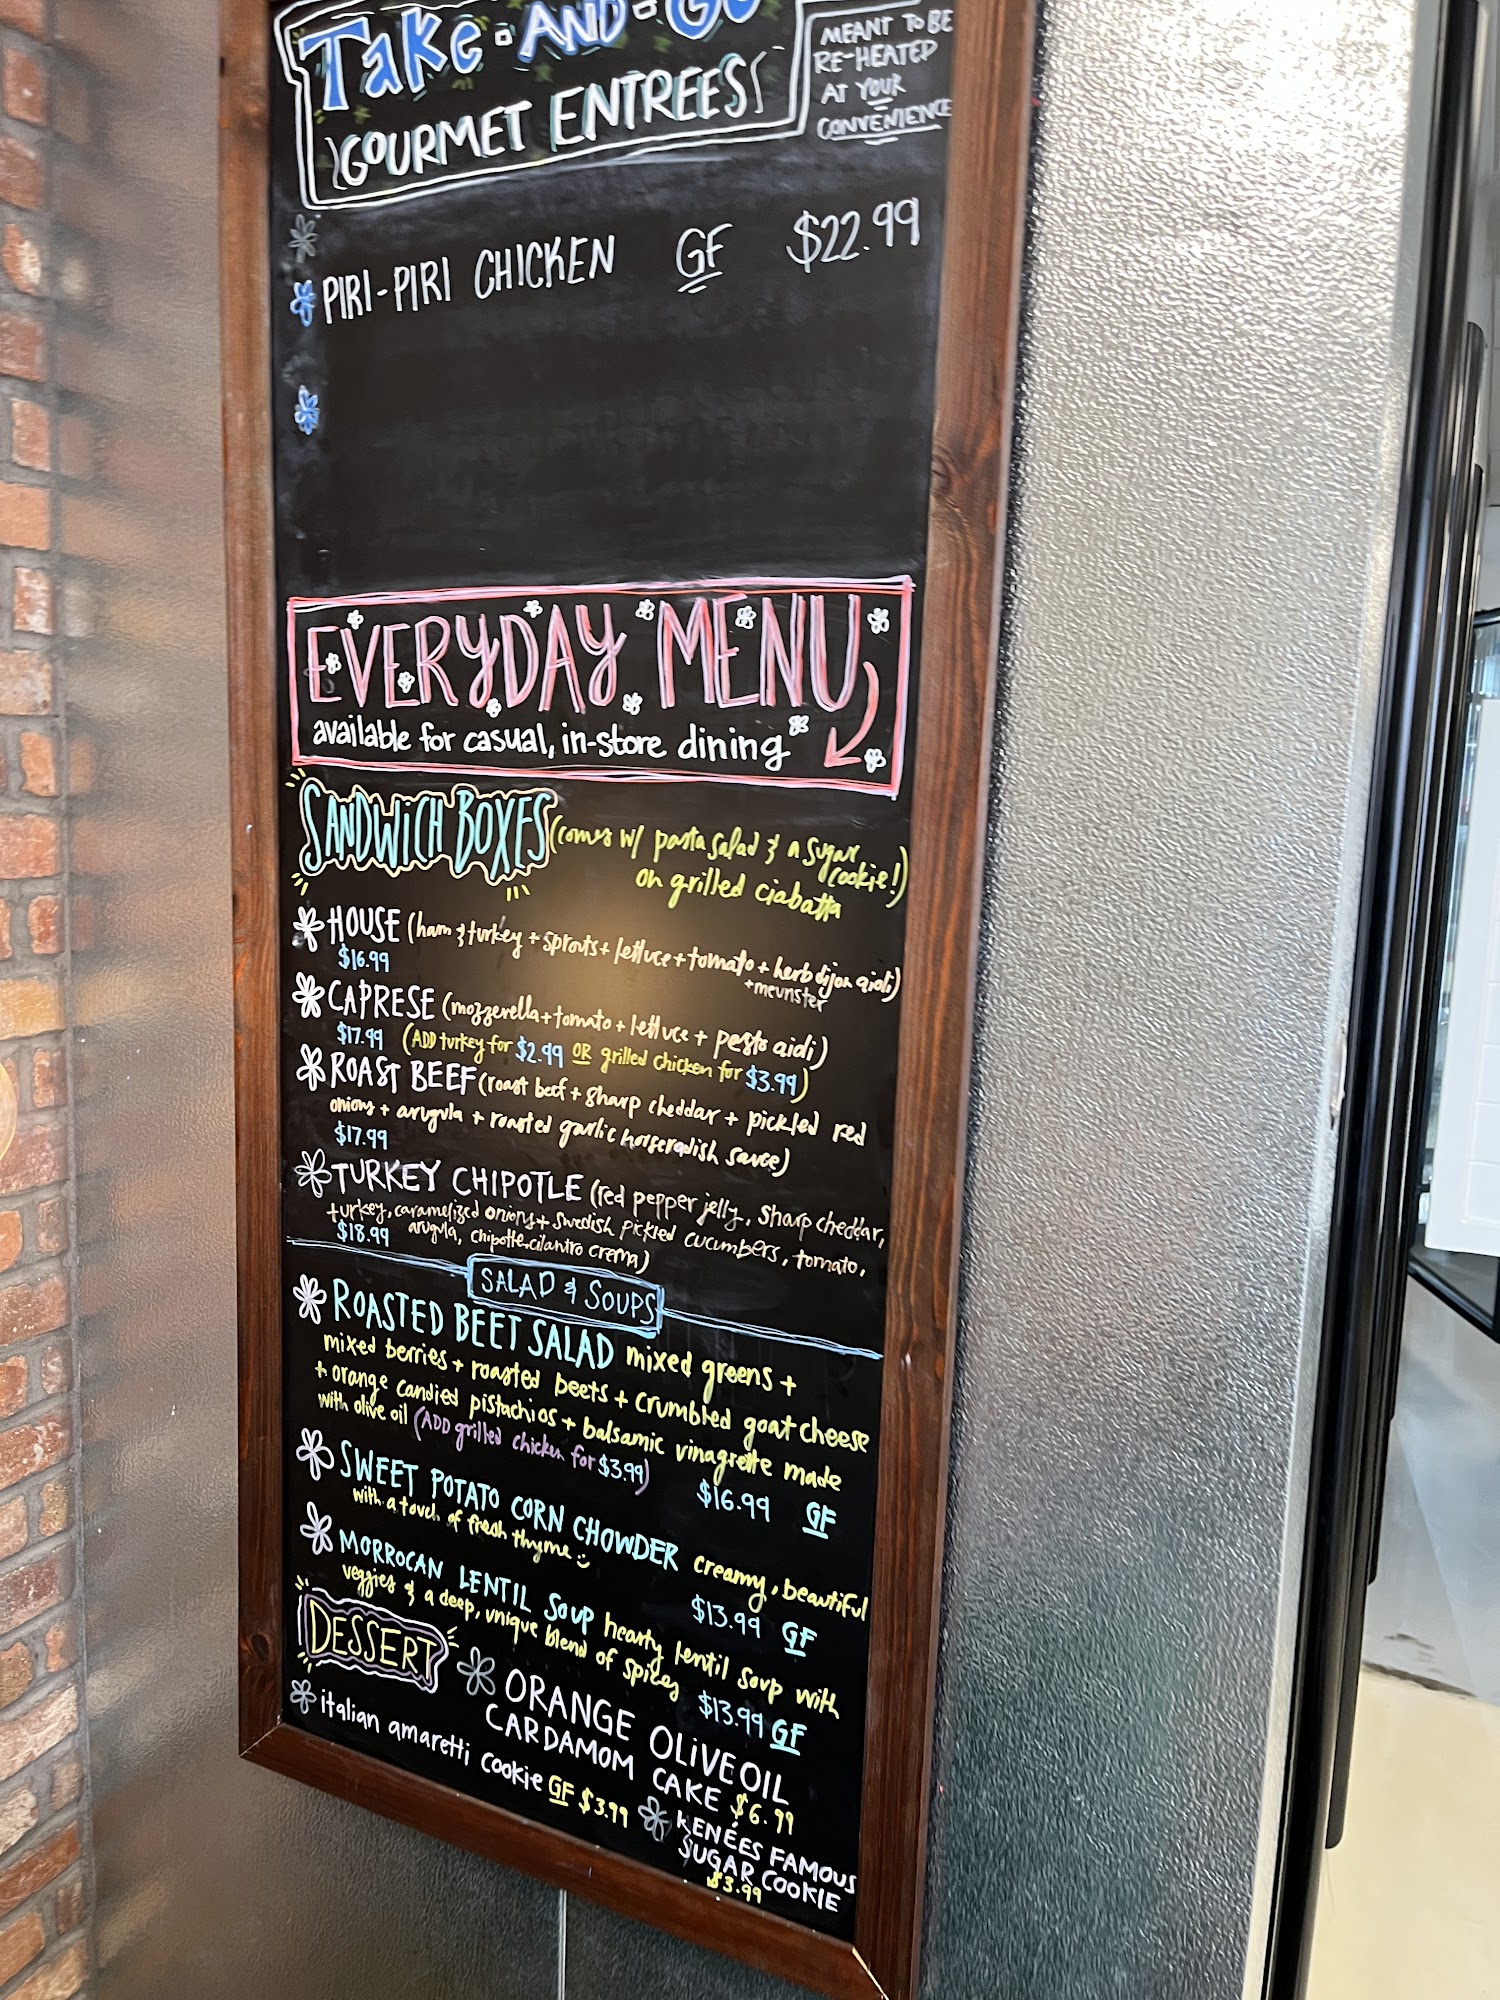 Take-AND-GO
GOURMET ENTREES
MEANT TO BE
RE-HEATED
AT YOUR
CONVENIENCE
PIRI-PIRI CHICKEN GF $22.99
EVERYDAY MENU
available for casual, in-store dining
SANDWICH BOXES (comes w/ pasta salad & a sugar
cookie!)
on grilled ciabatta
HOUSE (ham & turkey + sprouts + lettuce + tomato + herb dijon aioli)
+ meunster
$16.99
CAPRESE (mozzerella + tomato + lettuce + pesto aioli)
$17.99 (ADD turkey for $2.99 OR grilled chicken for $3.99)
ROAST BEEF (roast beef + sharp cheddar + pickled red
onions + arugula + roasted garlic horseradish sauce)
$17.99
TURKEY CHIPOTLE (red pepper jelly, sharp cheddar,
turkey, caramelized onions + swedish pickled cucumbers, tomato,
$18.99 arugula, chipotle-cilantro crema)
SALAD & SOUPS
ROASTED BEET SALAD mixed greens +
mixed berries + roasted beets + crumbled goat cheese
+ orange candied pistachios + balsamic vinagrette made
with olive oil (ADD grilled chicken for $3.99) $16.99 GF
SWEET POTATO CORN CHOWDER creamy, beautiful
with a touch of fresh thyme :) $13.99 GF
MORROCAN LENTIL SOUP hearty lentil soup with
veggies & a deep, unique blend of spices $13.99 GF
DESSERT
ORANGE OLIVE OIL
CARDAMOM CAKE $6.99
italian amaretti cookie GF $3.99
KENÉES FAMOUS
SUGAR COOKIE
$3.99